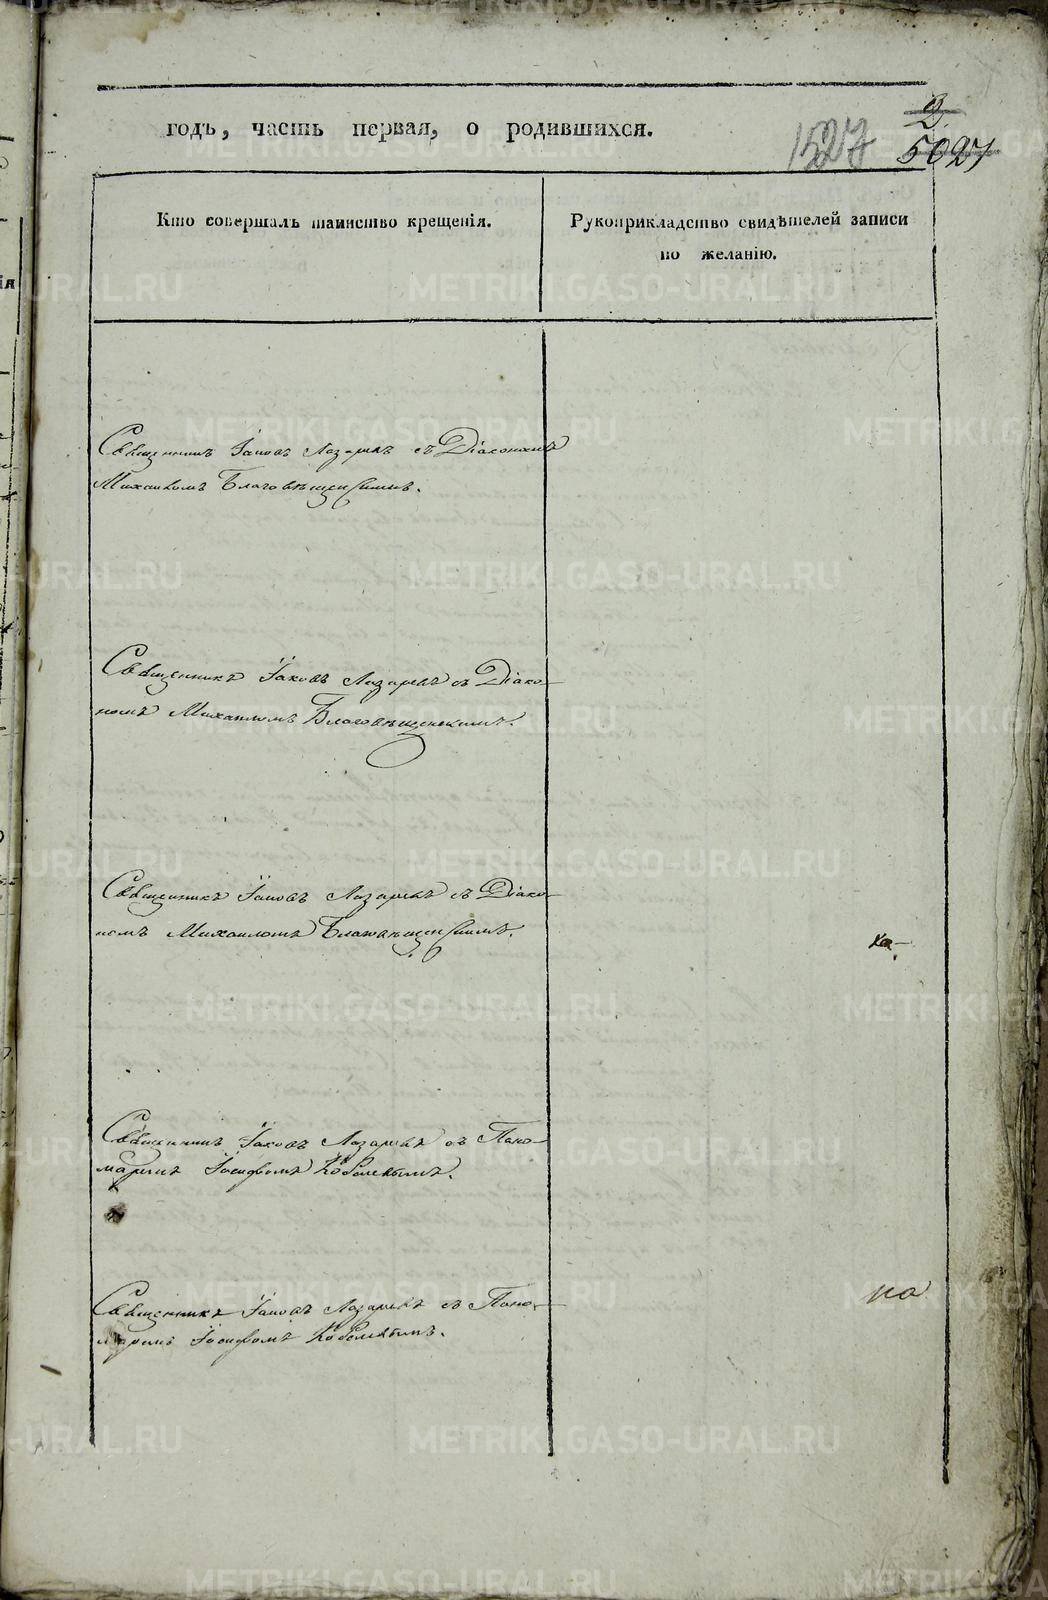 годъ, часть первая, о родившихся.
2.
1527 5027
Кто совершалъ таинство крещенія.
Рукоприкладство свидѣтелей записи
по желанію.
Священникъ Іаковъ Лазаревъ съ Діакономъ
Михаиломъ Благовѣщенскимъ.
Священникъ Іаковъ Лазаревъ съ Діако-
номъ Михаиломъ Благовѣщенскимъ.
Священникъ Іаковъ Лазаревъ съ Діако-
номъ Михаиломъ Благовѣщенскимъ.
Священникъ Іаковъ Лазаревъ съ Поно-
маремъ Іосифомъ
Священникъ Іаковъ Лазаревъ съ Поно-
маремъ Іосифомъ
но
METRIKI.GASO-URAL.RU